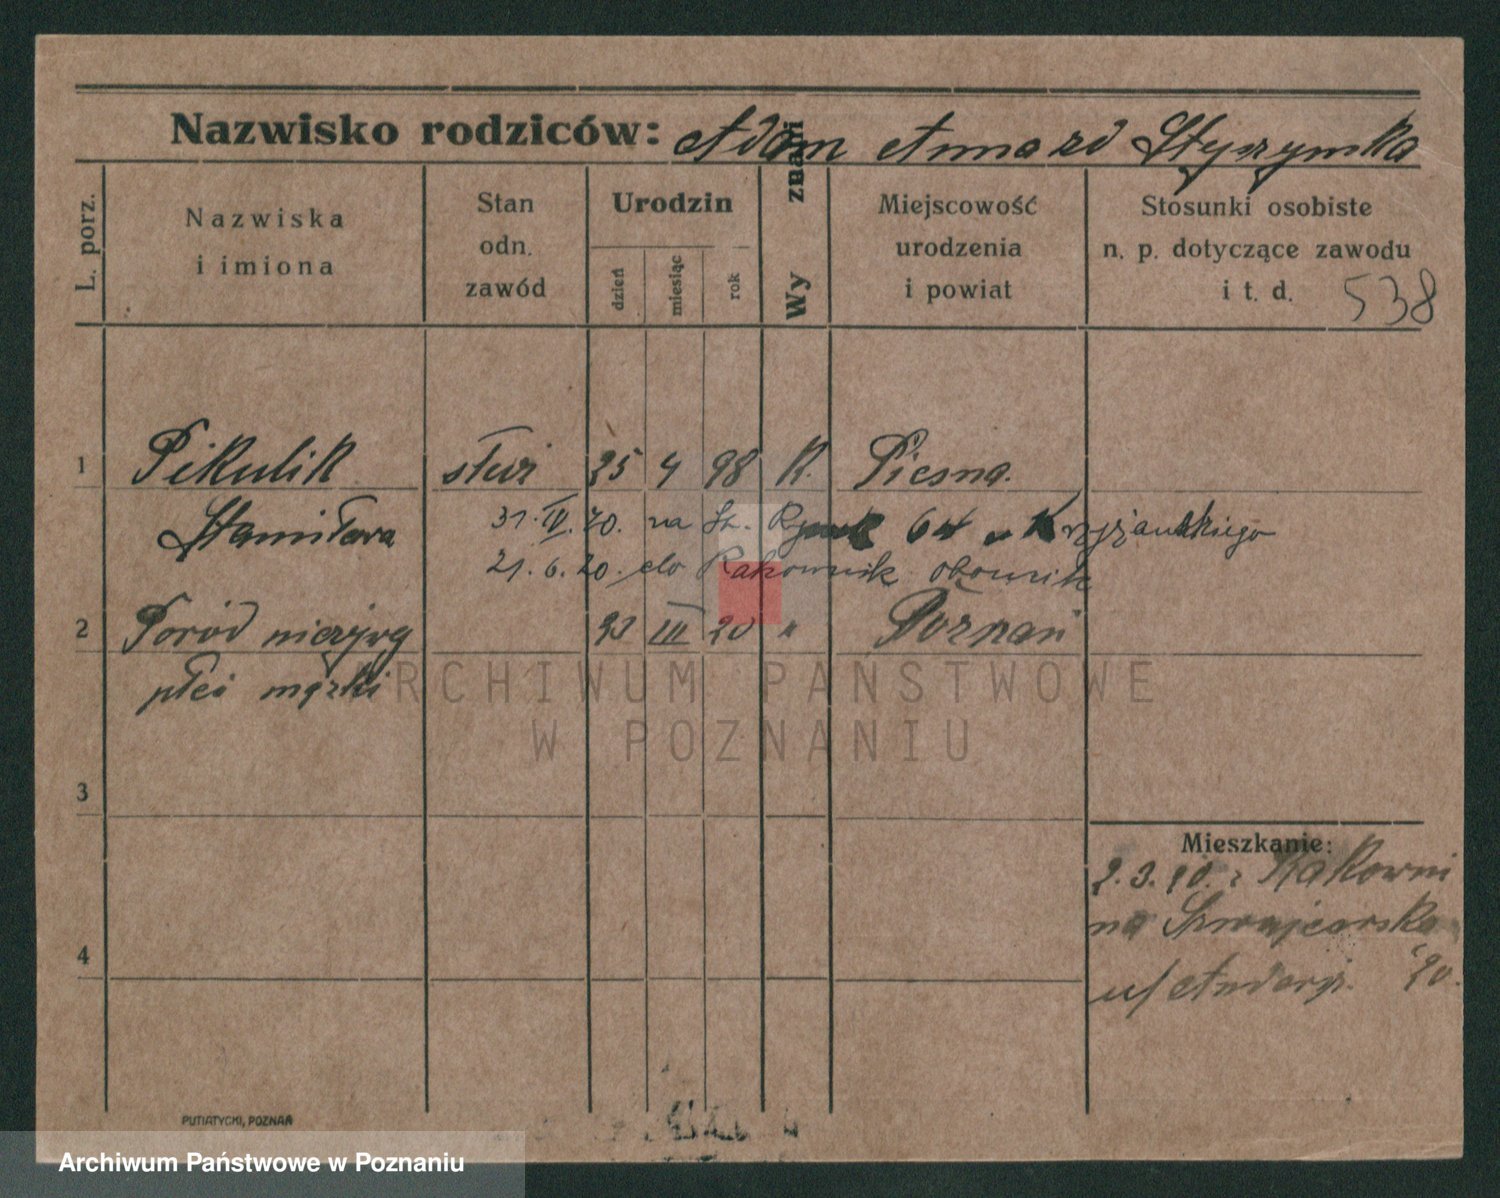 Nazwisko rodziców: Adam Anna zd Styszymska
L. porz.
Nazwiska
i imiona
Stan
odn.
zawód
Urodzin
dzień
miesiąc
rok
Wy znani
Miejscowość
urodzenia
i powiat
Stosunki osobiste
n. p. dotyczące zawodu
i t. d. 538
1 Pikulik 25 4 98 K. Piesna.
Stanisława 31. IV. 20. na St. Rynek 64 Krzyżańskiego
21. 6. 20. do Rakownik obornik
2 Poród nieżywy 23 III 20 " Poznań
płci męzki
3
4
Mieszkanie:
2. 3. 20. z Rakowni
na Szwajcarska
u/ 20.
PUTIATYCKI, POZNAŃ
ARCHIWUM PAŃSTWOWE
W POZNANIU
Archiwum Państwowe w Poznaniu